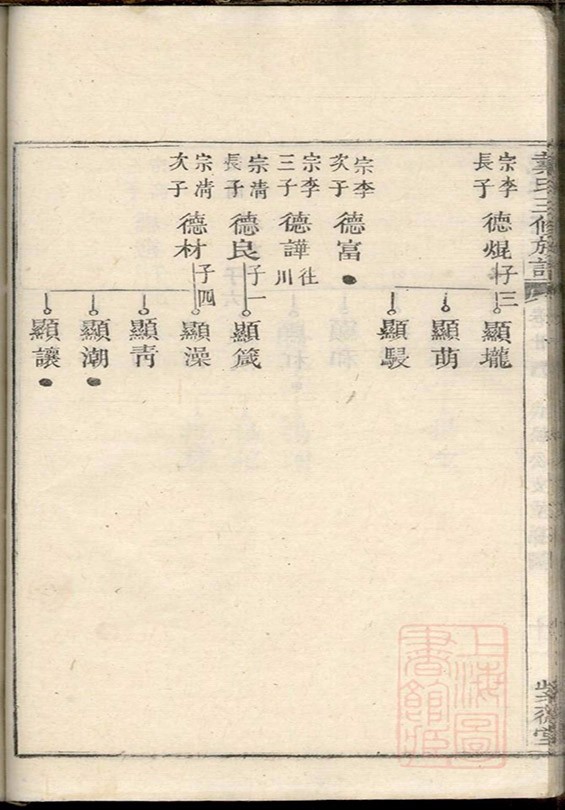 氏三修族譜
宗李
長子
德焜
子三
顯壠
顯萌
顯騴
宗李
次子
德富
宗李
三子
德譁
往川
宗清
長子
德良
子一
顯箴
宗清
次子
德材
子四
顯澡
顯靑
顯潮
顯讓
上海圖
書館藏